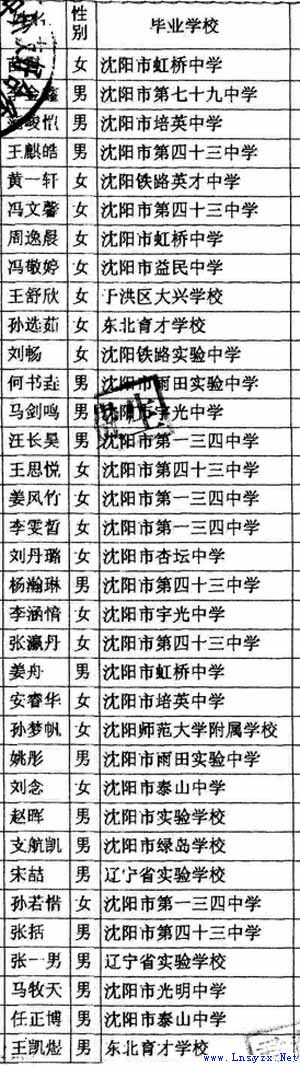 性别 毕业学校
女 沈阳市虹桥中学
鑫 男 沈阳市第七十九中学
男 沈阳市培英中学
王麒皓 男 沈阳市第四十三中学
黄一轩 女 沈阳铁路英才中学
冯文馨 女 沈阳市第四十三中学
周逸晨 女 沈阳市虹桥中学
冯敬婷 女 沈阳市益民中学
王舒欣 女 于洪区大兴学校
孙选茹 女 东北育才学校
刘畅 女 沈阳铁路实验中学
何书 男 沈阳市雨田实验中学
马剑鸣 男 沈阳市宇光中学
汪长昊 男 沈阳市第一三四中学
王思悦 女 沈阳市第四十三中学
姜风竹 女 沈阳市第一三四中学
李雯晳 女 沈阳市第一三四中学
刘丹璐 女 沈阳市杏坛中学
杨瀚琳 男 沈阳市第四十三中学
李涵愔 女 沈阳市宇光中学
张瀛丹 女 沈阳市第四十三中学
姜舟 男 沈阳市虹桥中学
安睿华 女 沈阳市培英中学
孙梦帆 女 沈阳师范大学附属学校
姚彤 男 沈阳市雨田实验中学
刘念 女 沈阳市泰山中学
赵晖 男 沈阳市实验学校
支航凯 男 沈阳市绿岛学校
宋喆 男 辽宁省实验学校
孙若惜 女 沈阳市第一三四中学
张括 男 沈阳市第四十三中学
张一男 男 辽宁省实验学校
马牧天 男 沈阳市光明中学
任正博 男 沈阳市泰山中学
王凯煜 男 东北育才学校
www.Lnsyzx.Net